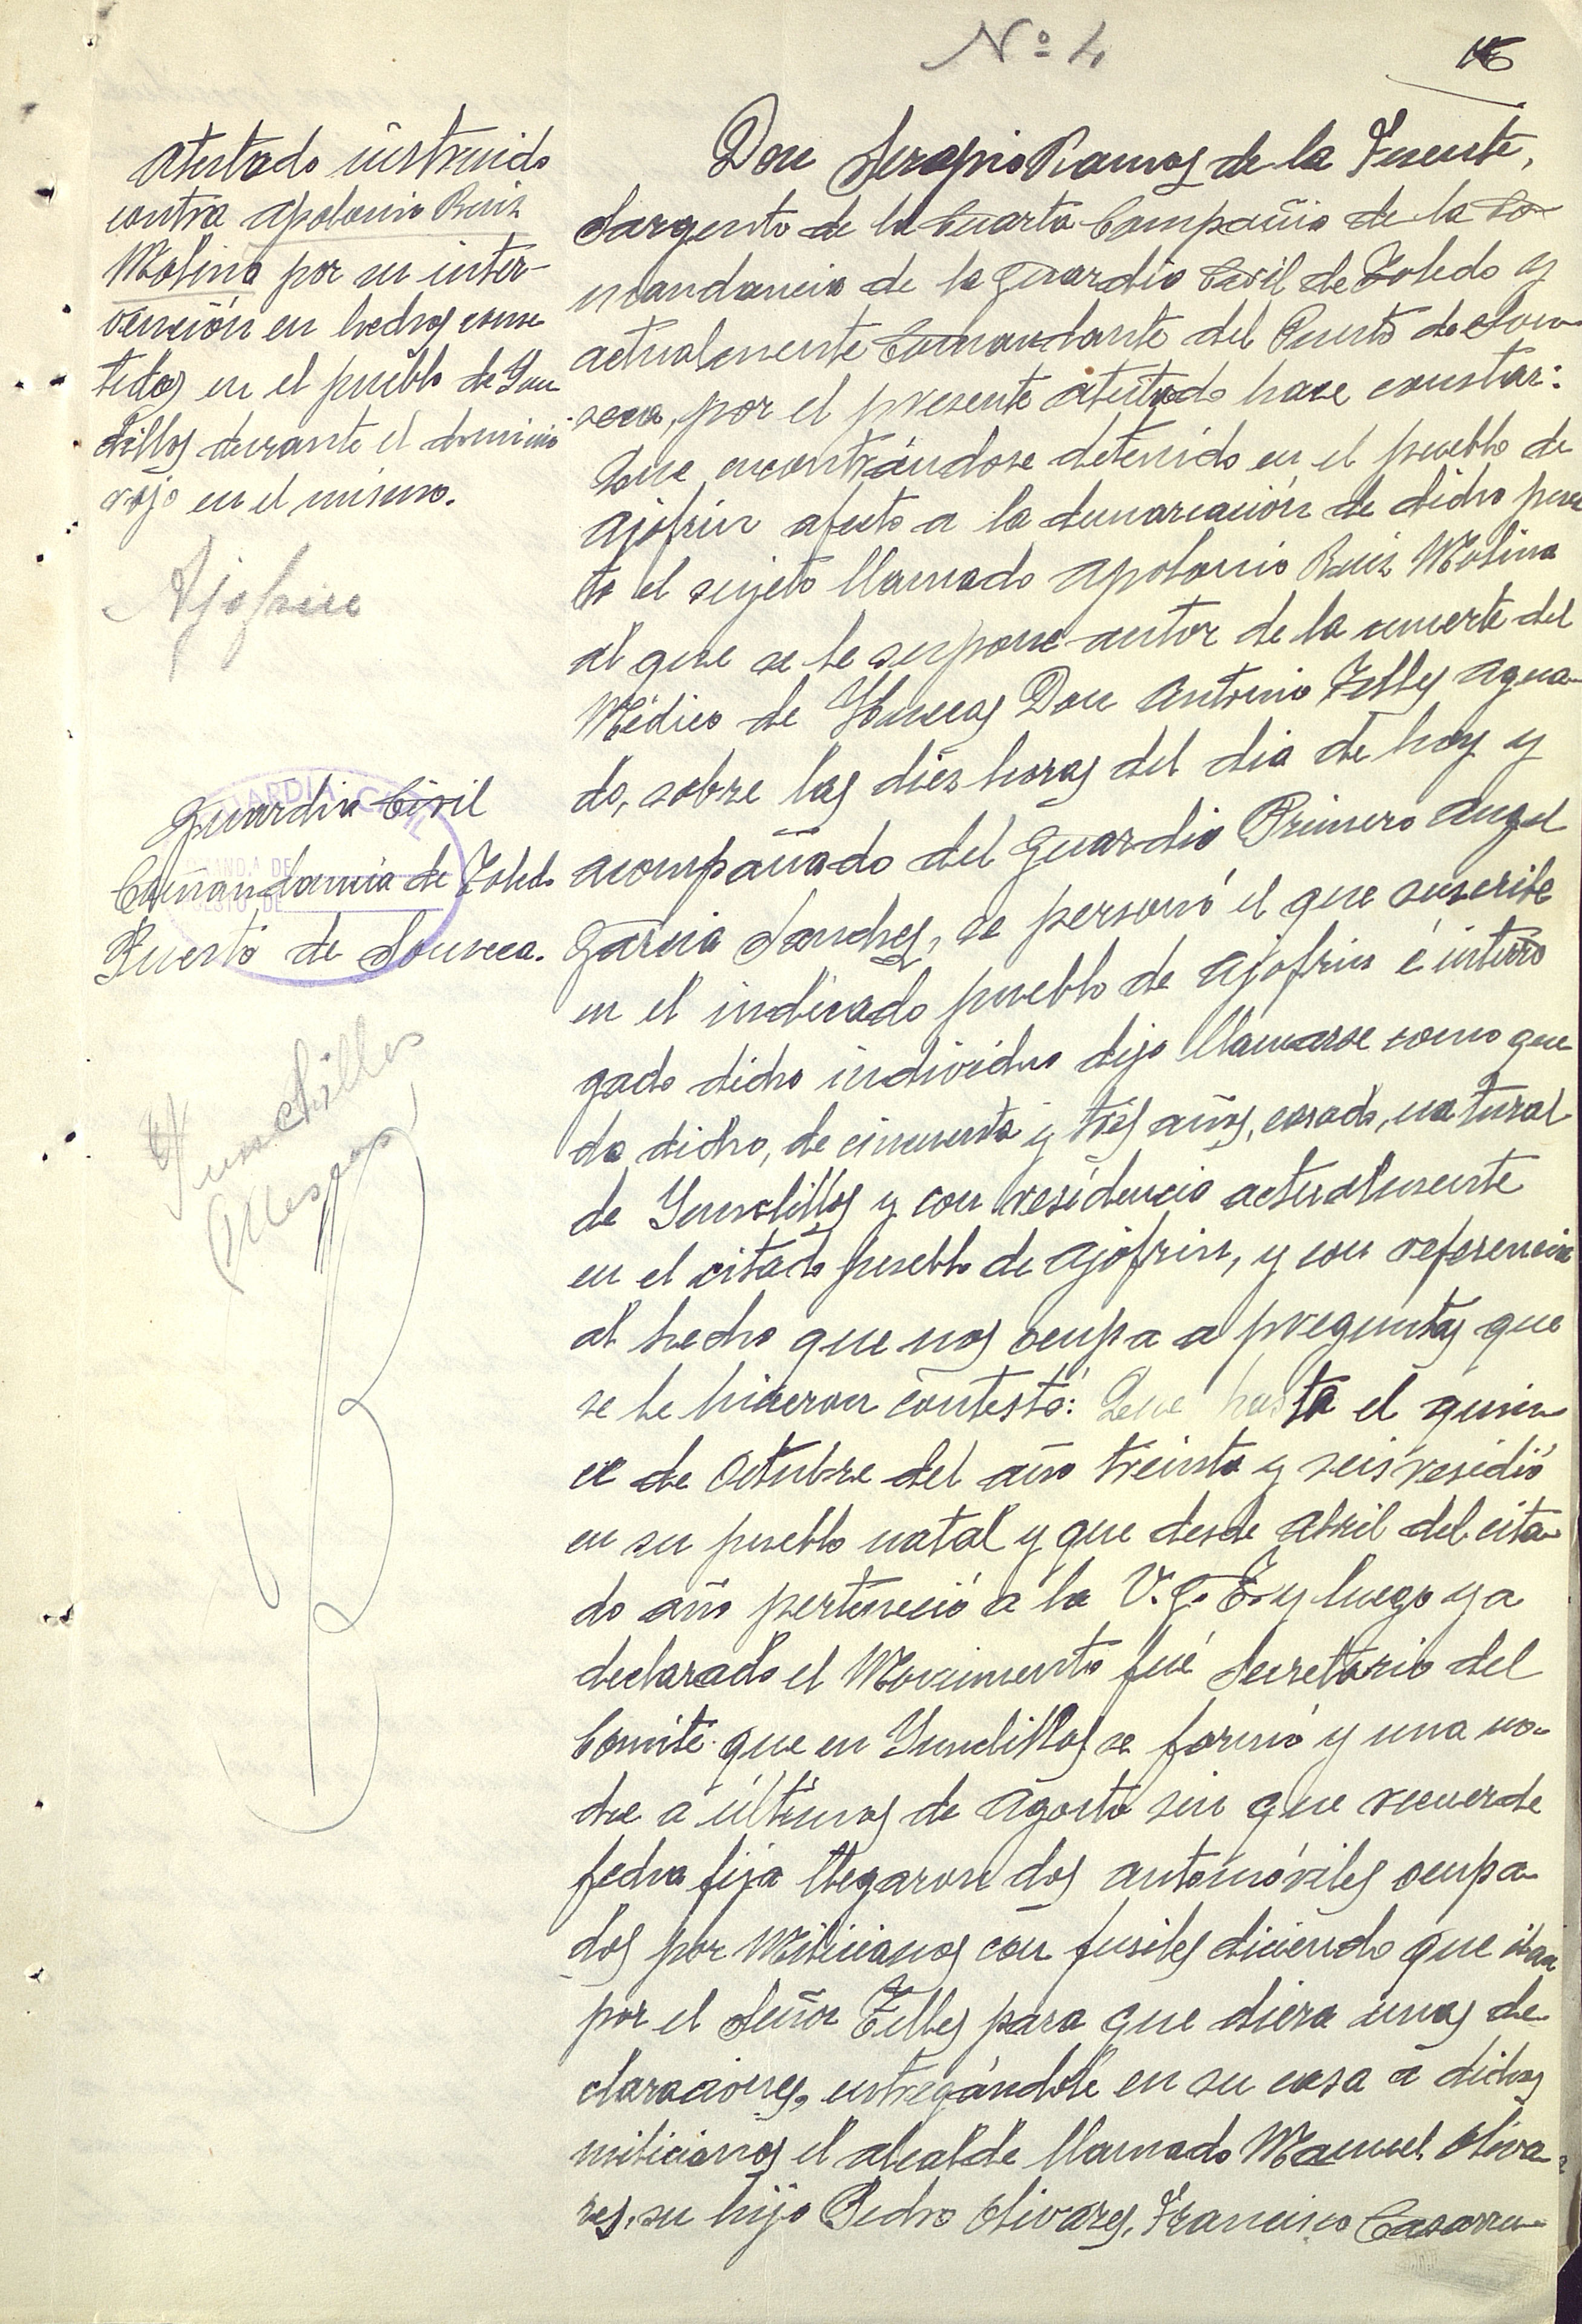 Nº 4
16
Atestado instruido
contra Apolonio Ruiz
Molina por su inter-
vención en hechos come
tidos en el pueblo de Yun
clillos durante el dominio
rojo en el mismo.
Ajofrin
GUARDIA CIVIL
Guardia Civil
Comandancia de Toledo
Puesto de Sonseca.
Yunclillos
Don Serapio Ramos de la Fuente,
Sargento de la Cuarta Compañia de la Co-
mandancia de la Guardia Civil de Toledo y
actualmente Comandante del Puesto de Son-
seca, por el presente atestado hace constar:
Que encontrándose detenido en el pueblo de
Ajofrin afecto a la demarcación de dicho pues
to el sujeto llamado Apolonio Ruiz Molina
al que se le supone autor de la muerte del
Médico de Don Antonio Telles Agua-
do, sobre las diez horas del dia de hoy y
acompañado del Guardia Primero Angel
Garcia Sanchez, se personó el que suscribe
en el indicado pueblo de Ajofrin é interro
gado dicho individuo dijo llamarse como que
da dicho, de cincuenta y tres años, casado, natural
de Yunclillos y con residencia actualmente
en el citado pueblo de Ajofrin, y con referencia
al hecho que nos ocupa a preguntas que
se le hicieron contestó: Que hasta el quin-
ce de Octubre del año treinta y seis residió
en su pueblo natal y que desde Abril del cita-
do año perteneció a la U.G.T. y luego ya
declarado el Movimiento fué Secretario del
Comité que en Yunclillos se formó y una no-
che a últimos de Agosto sin que recuerde
fecha fija llegaron dos automóviles ocupa-
dos por Milicianos con fusiles diciendo que iban
por el Señor Telles para que diera unas de-
claraciones, entregándole en su casa a dichos
milicianos el alcalde llamado Manuel Oliva-
res, su hijo Pedro Olivares, Francisco Casarru-